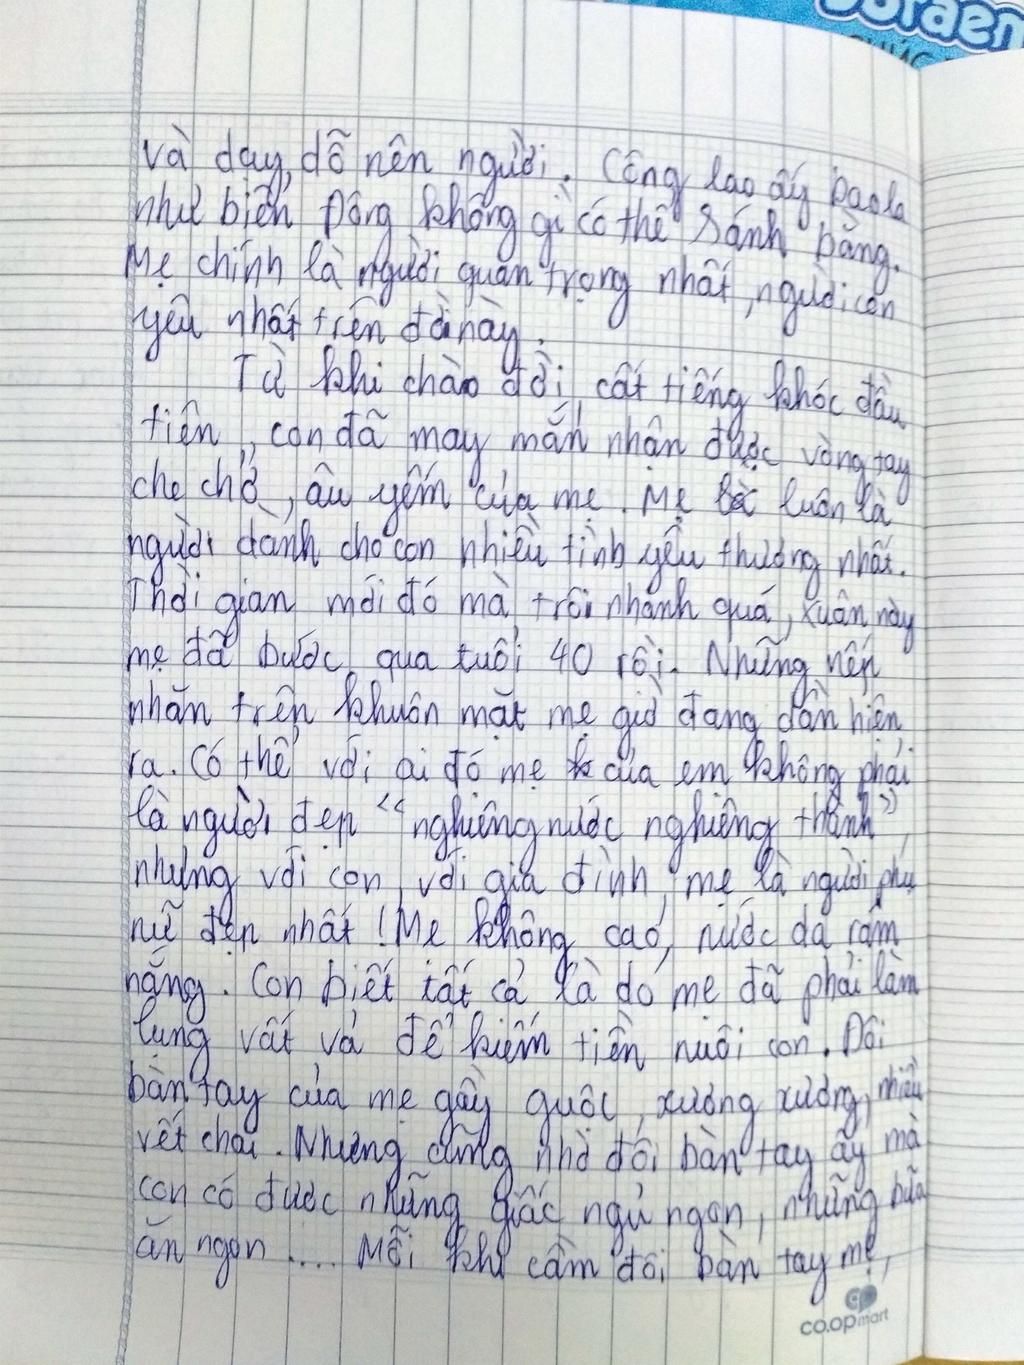 oraem
và dạy dỗ nên người. Công lao ấy bao la
như biển Đông không gì có thể sánh bằng.
Mẹ chính là người quan trọng nhất, người con
yêu nhất trên đời này.
Từ khi chào đời, cất tiếng khóc đầu
tiên, con đã may mắn nhận được vòng tay
che chở, âu yếm của mẹ. Mẹ luôn là
người dành cho con nhiều tình yêu thương nhất.
Thời gian mới đó mà trôi nhanh quá, xuân này
mẹ đã bước qua tuổi 40 rồi. Những nếp
nhăn trên khuôn mặt mẹ giờ đang dần hiện
ra. Có thể với ai đó mẹ của em không phải
là người đẹp "nghiêng nước nghiêng thành",
nhưng với con, với gia đình, mẹ là người phụ
nữ đẹp nhất! Mẹ không cao, nước da rám
nắng. Con biết tất cả là do mẹ đã phải làm
lụng vất vả để kiếm tiền nuôi con. Đôi
bàn tay của mẹ gầy guộc, xương xương, nhiều
vết chai. Nhưng cũng nhờ đôi bàn tay ấy mà
con có được những giấc ngủ ngon, những bữa
ăn ngon .... Mỗi khi cầm đôi bàn tay mẹ,
co.opmart